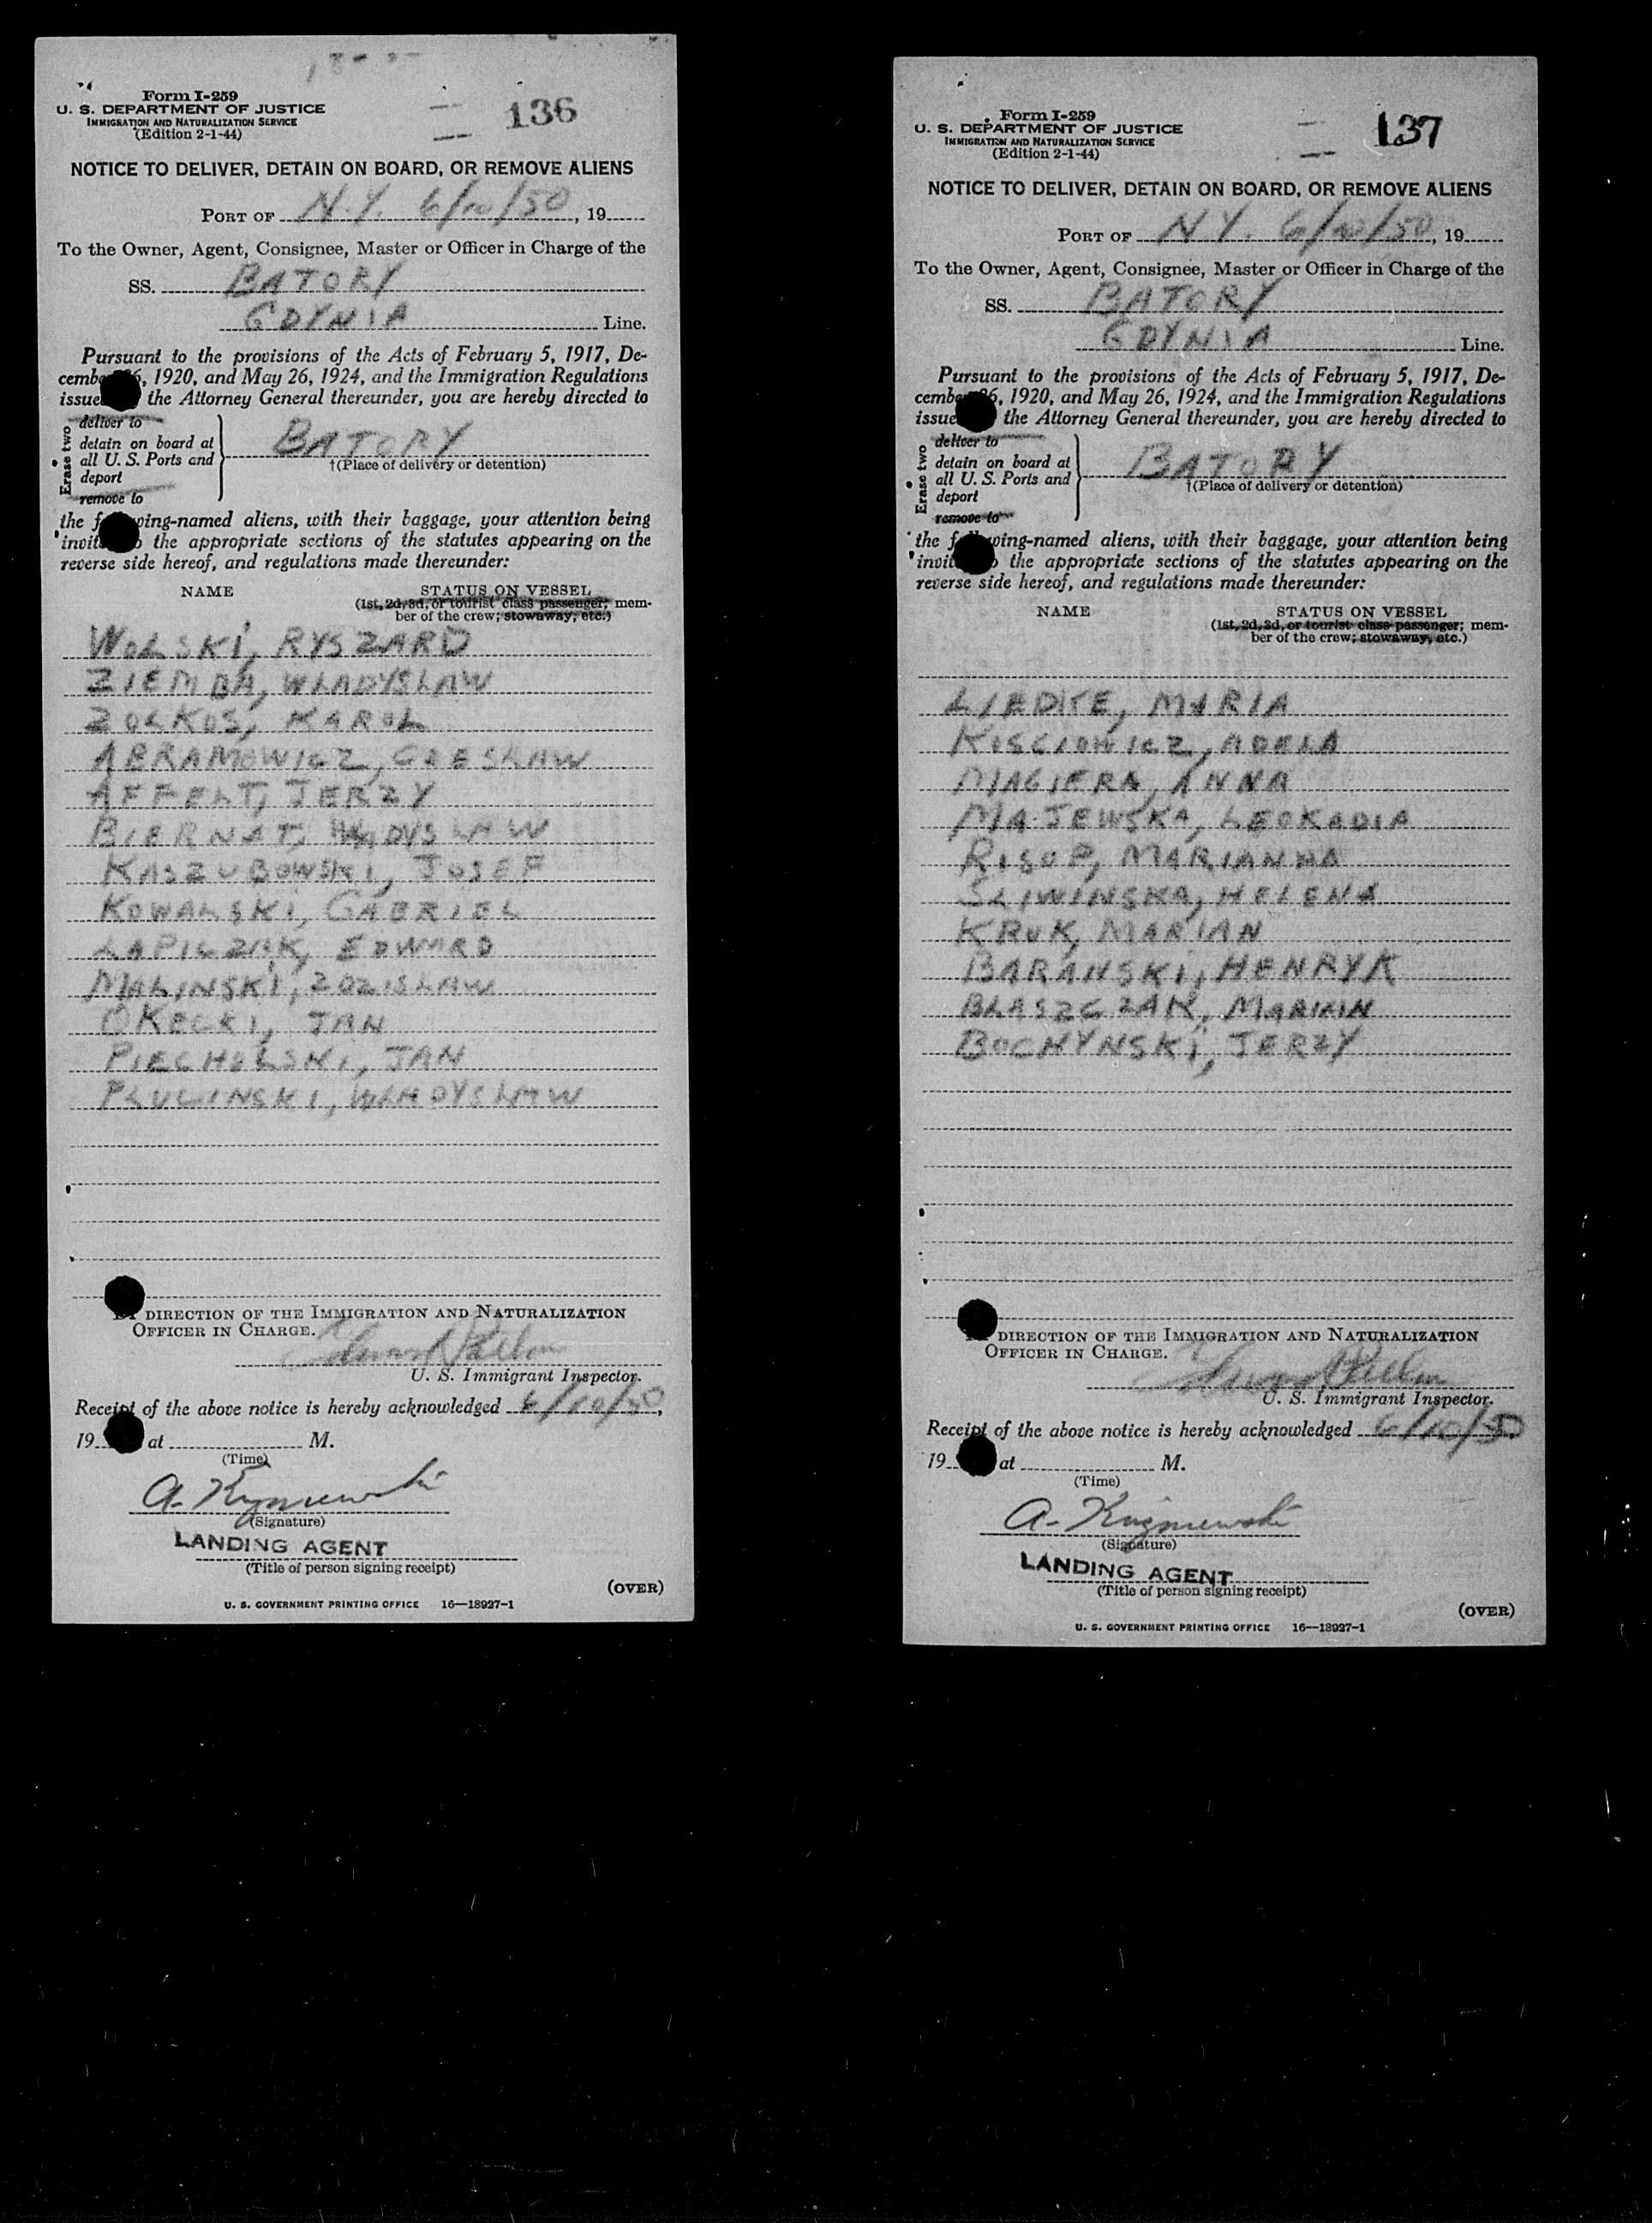 Form I-259
U. S. DEPARTMENT OF JUSTICE
IMMIGRATION AND NATURALIZATION SERVICE
(Edition 2-1-44)
136
NOTICE TO DELIVER, DETAIN ON BOARD, OR REMOVE ALIENS
PORT OF N.Y. 6/10/50, 19
To the Owner, Agent, Consignee, Master or Officer in Charge of the
SS. BATORY
GDYNIA Line.
Pursuant to the provisions of the Acts of February 5, 1917, De-
cember 26, 1920, and May 26, 1924, and the Immigration Regulations
issued the Attorney General thereunder, you are hereby directed to
Erase two
deliver to
detain on board at
all U. S. Ports and
deport
remove to
BATORY
†(Place of delivery or detention)
the following-named aliens, with their baggage, your attention being
invited to the appropriate sections of the statutes appearing on the
reverse side hereof, and regulations made thereunder:
NAME STATUS ON VESSEL
(1st, 2d, 3d, or tourist class passenger; mem-
ber of the crew; stowaway, etc.)
WOLSKI, RYSZARD
ZIEMBA, WLADYSLAW
ZOLKOS, KAROL
ABRAMOWICZ, CZESLAW
AFFELT, JERZY
BIERNAT, WLADYSLAW
KASZUBOWSKI, JOSEF
KOWALSKI, GABRIEL
LAPICZAK, EDWARD
MALINSKI, ZDZISLAW
OKECKI, JAN
PIECHOLSKI, JAN
PLUCINSKI, WLADYSLAW
BY DIRECTION OF THE IMMIGRATION AND NATURALIZATION
OFFICER IN CHARGE.
U. S. Immigrant Inspector.
Receipt of the above notice is hereby acknowledged 6/10/50,
19 at M.
(Time)
A.
(Signature)
LANDING AGENT
(Title of person signing receipt)
(OVER)
U. S. GOVERNMENT PRINTING OFFICE 16—18927-1
Form I-259
U. S. DEPARTMENT OF JUSTICE
IMMIGRATION AND NATURALIZATION SERVICE
(Edition 2-1-44)
137
NOTICE TO DELIVER, DETAIN ON BOARD, OR REMOVE ALIENS
PORT OF N.Y. 6/10/50, 19
To the Owner, Agent, Consignee, Master or Officer in Charge of the
SS. BATORY
GDYNIA Line.
Pursuant to the provisions of the Acts of February 5, 1917, De-
cember 26, 1920, and May 26, 1924, and the Immigration Regulations
issued the Attorney General thereunder, you are hereby directed to
Erase two
deliver to
detain on board at
all U. S. Ports and
deport
remove to
BATORY
†(Place of delivery or detention)
the following-named aliens, with their baggage, your attention being
invited to the appropriate sections of the statutes appearing on the
reverse side hereof, and regulations made thereunder:
NAME STATUS ON VESSEL
(1st, 2d, 3d, or tourist class passenger; mem-
ber of the crew; stowaway, etc.)
LIEDKE, MARIA
KOSCIOWICZ, ADELA
MAGIERA, ANNA
MAJEWSKA, LEOKADIA
RISOP, MARIANNA
SLIWINSKA, HELENA
KRUK, MARIAN
BARANSKI, HENRYK
BLASZCZAK, MARIAN
BOCHYNSKI, JERZY
BY DIRECTION OF THE IMMIGRATION AND NATURALIZATION
OFFICER IN CHARGE.
U. S. Immigrant Inspector.
Receipt of the above notice is hereby acknowledged 6/10/50.
19 at M.
(Time)
A.
(Signature)
LANDING AGENT
(Title of person signing receipt)
(OVER)
U. S. GOVERNMENT PRINTING OFFICE 16—18927-1